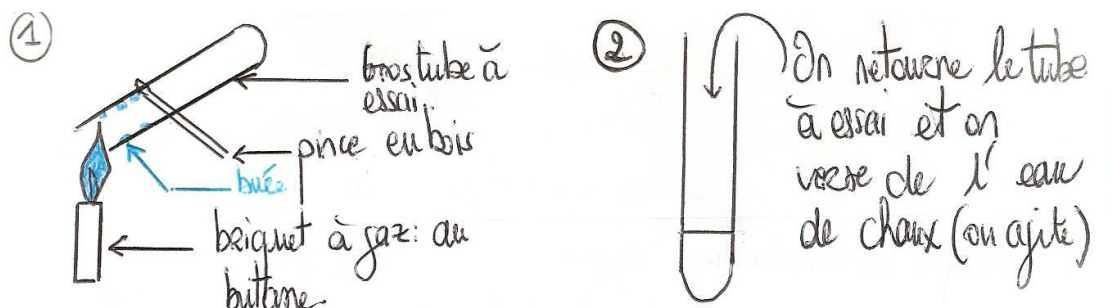 1
gros tube à
essai.
pince en bois
buée
briquet à gaz: au
buttane
2
On retourne le tube
à essai et on
verse de l'eau
de chaux (on agite)